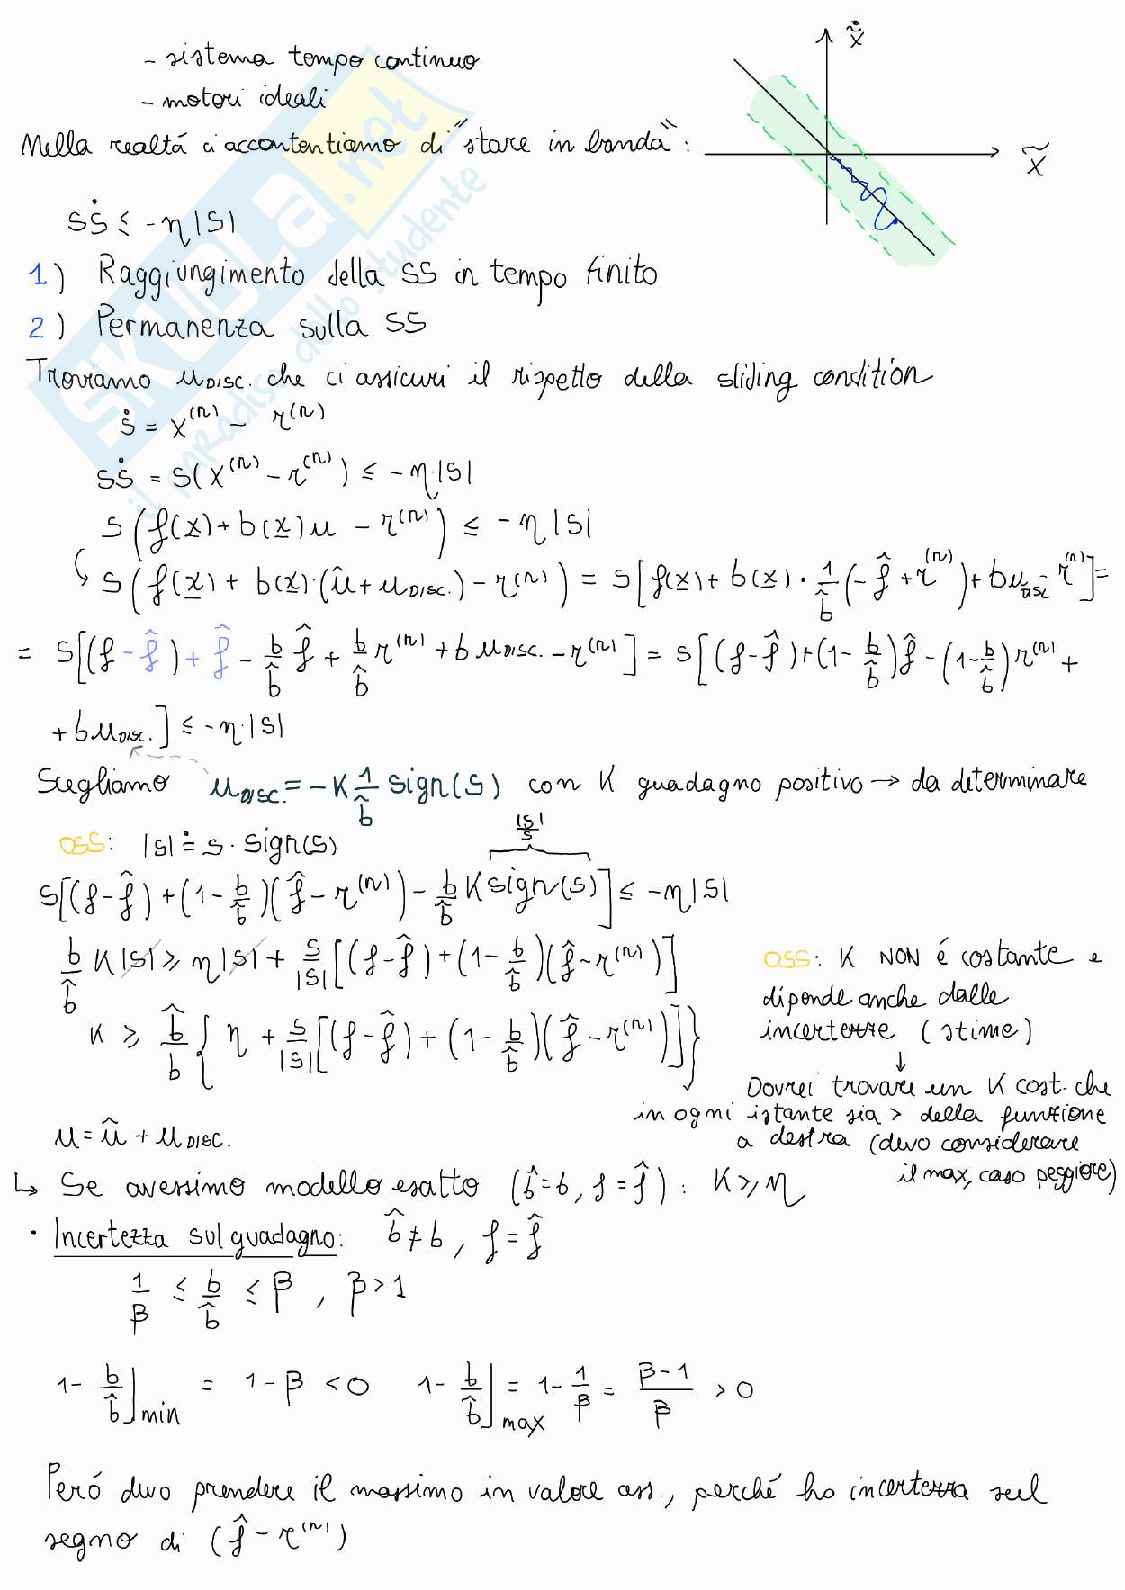 - sistema tempo continuo
- motori ideali
Nella realtá ci accontentiamo di "stare in banda":
x̃̇
x̃
sṡ ≤ -η|s|
1) Raggiungimento della SS in tempo finito
2) Permanenza sulla SS
Troviamo u_DISC. che ci assicuri il rispetto della sliding condition
ṡ = x^(n) - r^(n)
sṡ = s(x^(n) - r^(n)) ≤ -η|s|
s(f(x) + b(x)u - r^(n)) ≤ -η|s|
↳ s(f(x) + b(x)·(û + u_DISC.) - r^(n)) = s[f(x) + b(x)·1/b̂(-f̂ + r^(n)) + bu_DISC - r^(n)] =
= s[(f - f̂) + f̂ - b/b̂ f̂ + b/b̂ r^(n) + bu_DISC. - r^(n)] = s[(f - f̂) + (1 - b/b̂)f̂ - (1 - b/b̂)r^(n) +
+ bu_DISC.] ≤ -η·|s|
Scegliamo u_DISC. = -K 1/b̂ sign(s) con K guadagno positivo → da determinare
OSS: |s| ≐ s·sign(s)
|s|/s
s[(f - f̂) + (1 - b/b̂)(f̂ - r^(n)) - b/b̂ K sign(s)] ≤ -η|s|
b/b̂ K|s| ≥ η|s| + s/|s| [(f - f̂) + (1 - b/b̂)(f̂ - r^(n))]
K ≥ b̂/b {η + s/|s| [(f - f̂) + (1 - b/b̂)(f̂ - r^(n))]}
OSS: K NON é costante e
dipende anche dalle
incertezze (stime)
↓
Dovrei trovare un K cost. che
in ogni istante sia > della funzione
a destra (devo considerare
il max, caso peggiore)
u = û + u_DISC.
↳ Se avessimo modello esatto (b̂ = b, f = f̂): K ≥ η
· Incertezza sul guadagno: b̂ ≠ b, f = f̂
1/β ≤ b/b̂ ≤ β, β > 1
1 - b/b̂]min = 1 - β < 0 1 - b/b̂]max = 1 - 1/β = β-1/β > 0
Peró devo prendere il massimo in valore ass, perché ho incertezza sul
segno di (f̂ - r^(n))
SKUOLA.net
il paradiso dello studente